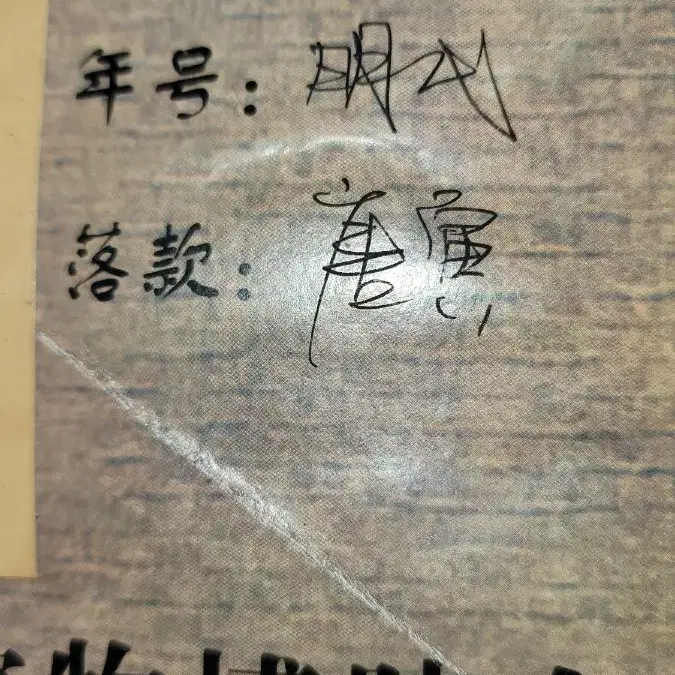 年号：明代
落款：唐寅